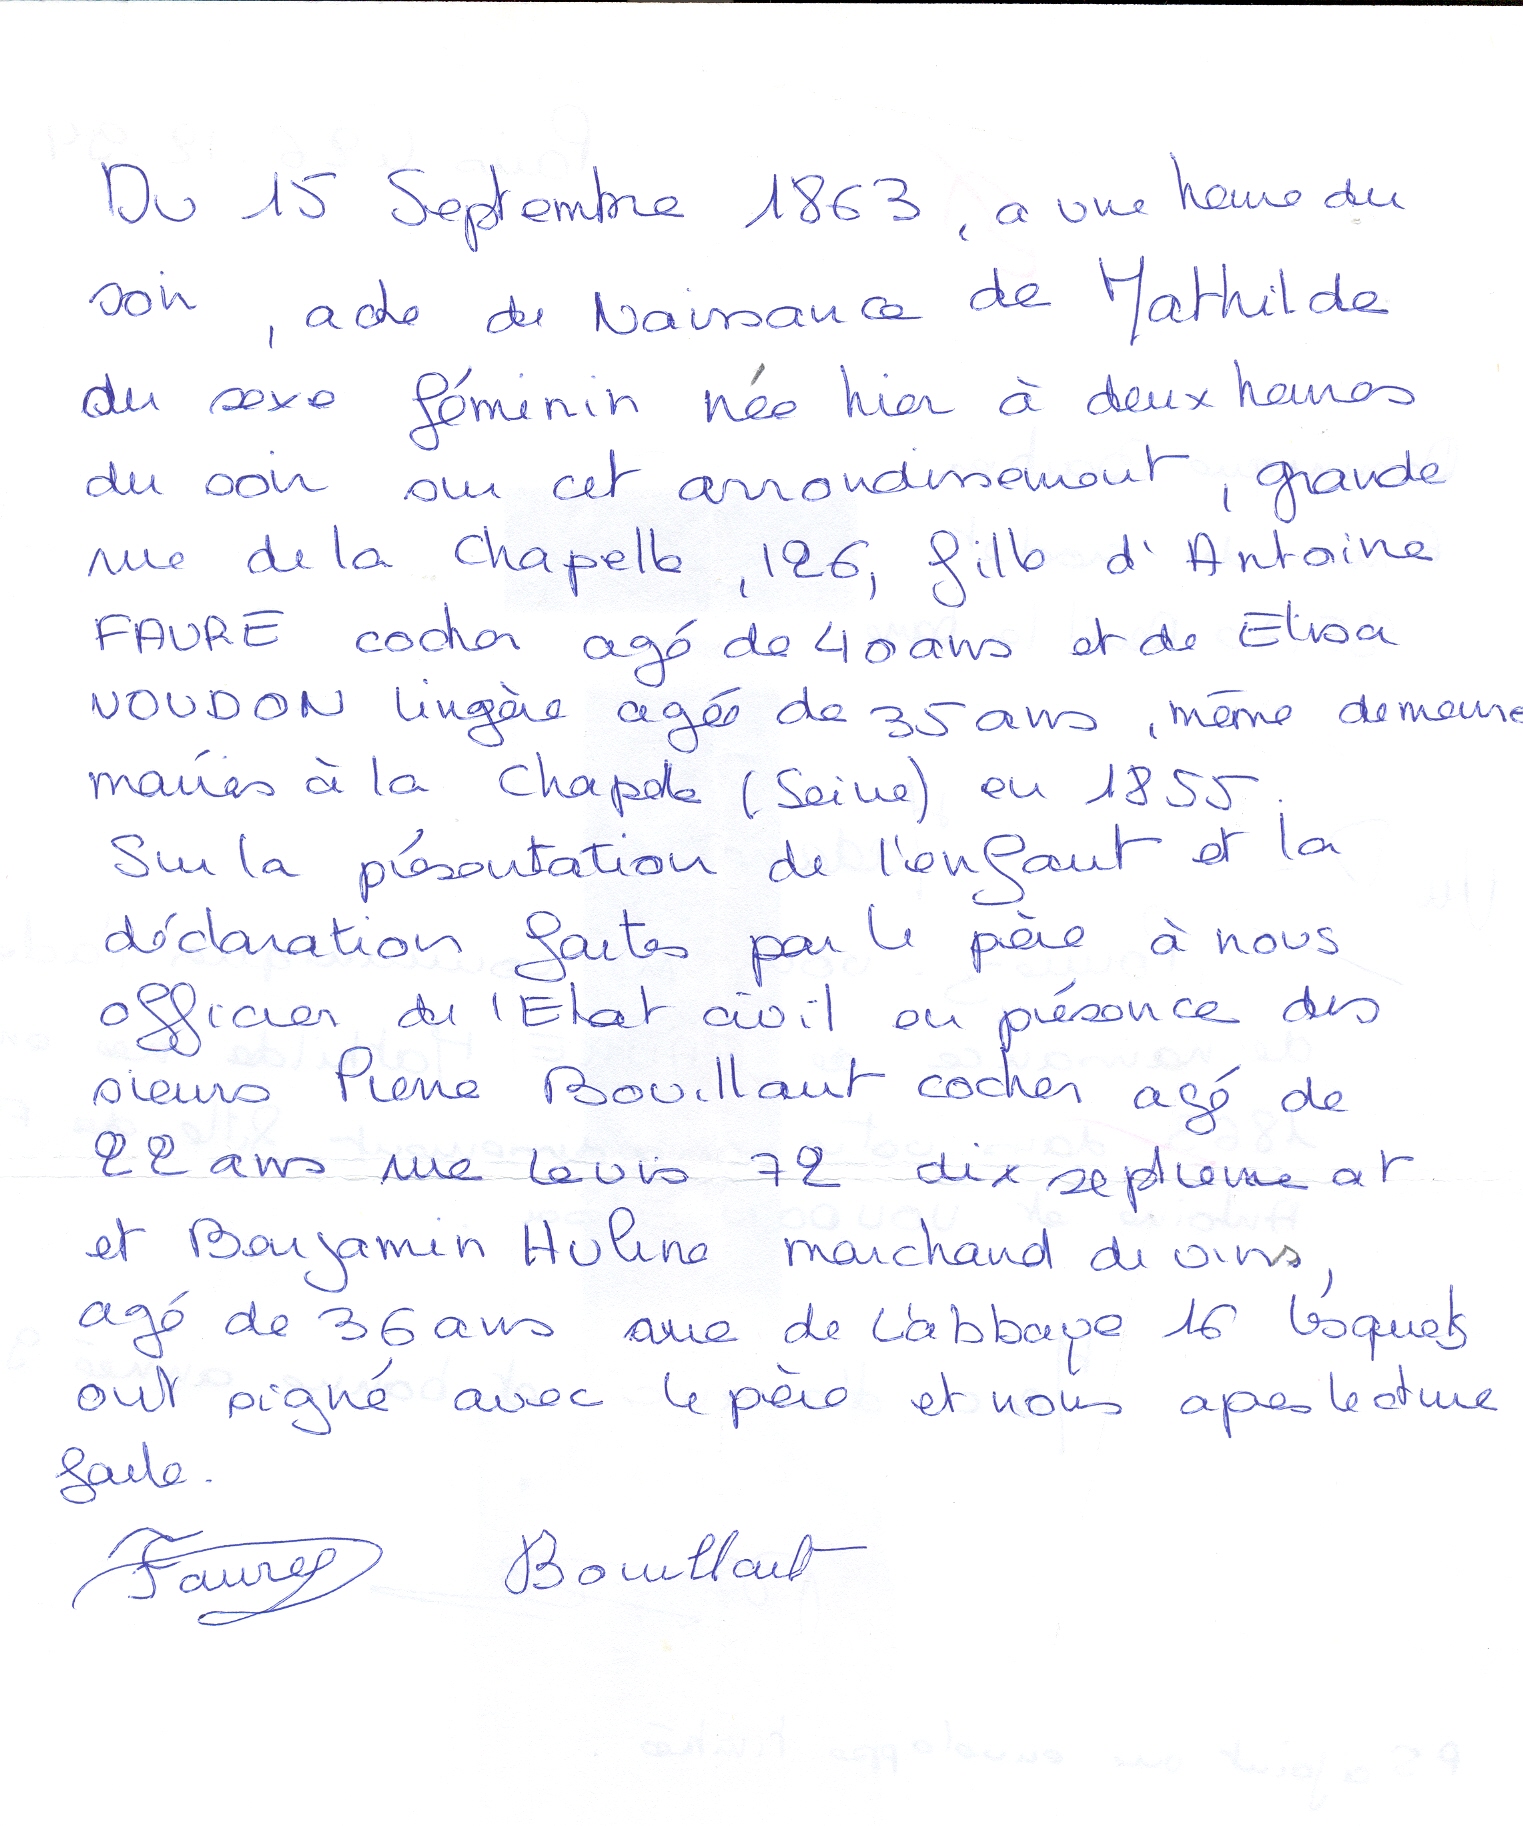 Du 15 Septembre 1863, a une heure du
soir, acte de Naissance de Mathilde
du sexe féminin née hier à deux heures
du soir sur cet arrondissement, grande
rue de la Chapelle, 126, fille d'Antoine
FAURE cocher agé de 40 ans et de Elisa
VOUDON lingère agée de 35 ans, même demeure
mariés à la Chapelle (Seine) en 1855.
Sur la présentation de l'enfant et la
déclaration faites par le père à nous
officier de l'Etat civil en présence des
sieurs Pierre Bouillaut cocher agé de
22 ans rue Levis 72 dix septieme ar
et Benjamin Huline marchand de vins,
agé de 36 ans rue de L'abbaye 16 lesquels
ont signé avec le père et nous apres lecture
faite.
Faure Bouillaut